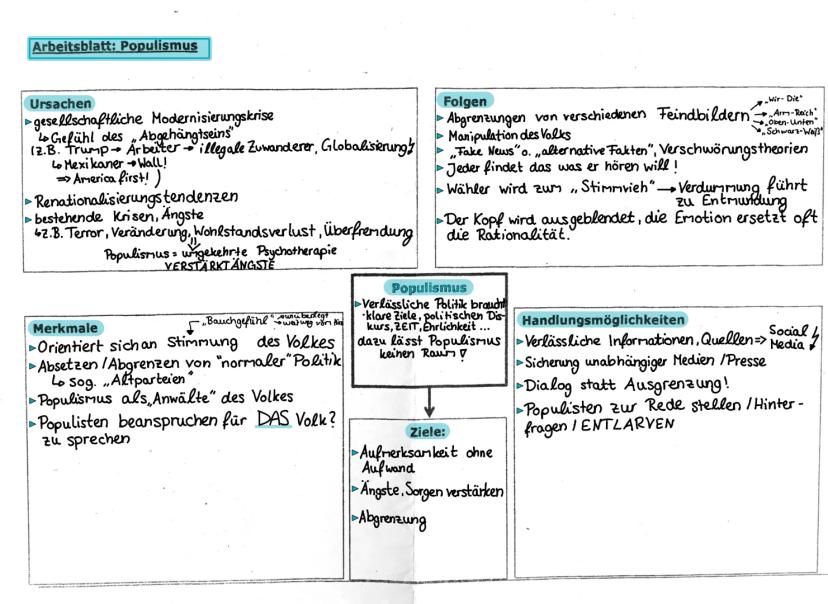 Arbeitsblatt: Populismus
Ursachen
▶ gesellschaftliche Modernisierungskrise
↳ Gefühl des „Abgehängtseins"
(z.B. Trump → Arbeiter → illegale Zuwanderer, Globalisierung↯
↳ Mexikaner → Wall!
⇒ America first! )
▶ Renationalisierungstendenzen
▶ bestehende Krisen, Ängste
↳ z.B. Terror, Veränderung, Wohlstandsverlust, Überfremdung
Populismus = umgekehrte Psychotherapie
VERSTÄRKT ÄNGSTE
Folgen
▶ Abgrenzungen von verschiedenen Feindbildern
→ „Wir-Die"
→ „Arm-Reich"
→ „Oben-Unten"
→ „Schwarz-Weiß"
▶ Manipulation des Volks
▶ „Fake News" o. „alternative Fakten", Verschwörungstheorien
▶ Jeder findet das was er hören will!
▶ Wähler wird zum „Stimmvieh" → Verdummung führt
zu Entmündung
▶ Der Kopf wird ausgeblendet, die Emotion ersetzt oft
die Rationalität.
Populismus
▶ Verlässliche Politik braucht
klare Ziele, politischen Dis-
kurs, ZEIT, Ehrlichkeit ...
dazu lässt Populismus
keinen Raum!
Merkmale
„Bauchgefühl"
▶ Orientiert sich an Stimmung des Volkes
▶ Absetzen / Abgrenzen von "normaler" Politik
↳ sog. „Altparteien"
▶ Populismus als „Anwälte" des Volkes
▶ Populisten beanspruchen für DAS Volk?
zu sprechen
Ziele:
▶ Aufmerksamkeit ohne
Aufwand
▶ Ängste, Sorgen verstärken
▶ Abgrenzung
Handlungsmöglichkeiten
▶ Verlässliche Informationen, Quellen ⇒ Social
Media ↯
▶ Sicherung unabhängiger Medien / Presse
▶ Dialog statt Ausgrenzung!
▶ Populisten zur Rede stellen / Hinter-
fragen / ENTLARVEN